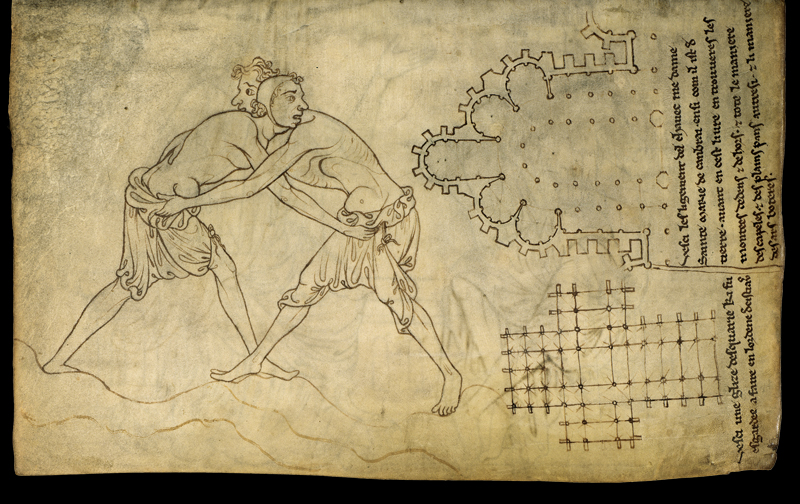 Vesci lesligement del chavec me dame
Sainte marie de canbrai ensi com il ist de
tierre. avant en cest livre en trouveres les
montees dedens ⁊ dehors. ⁊ tote le maniere
des capeles. ⁊ des plains pans autresi. ⁊ li maniere
des ars boteres.
Vesci une glize desquarie ki fu
esgardee a faire en lordene